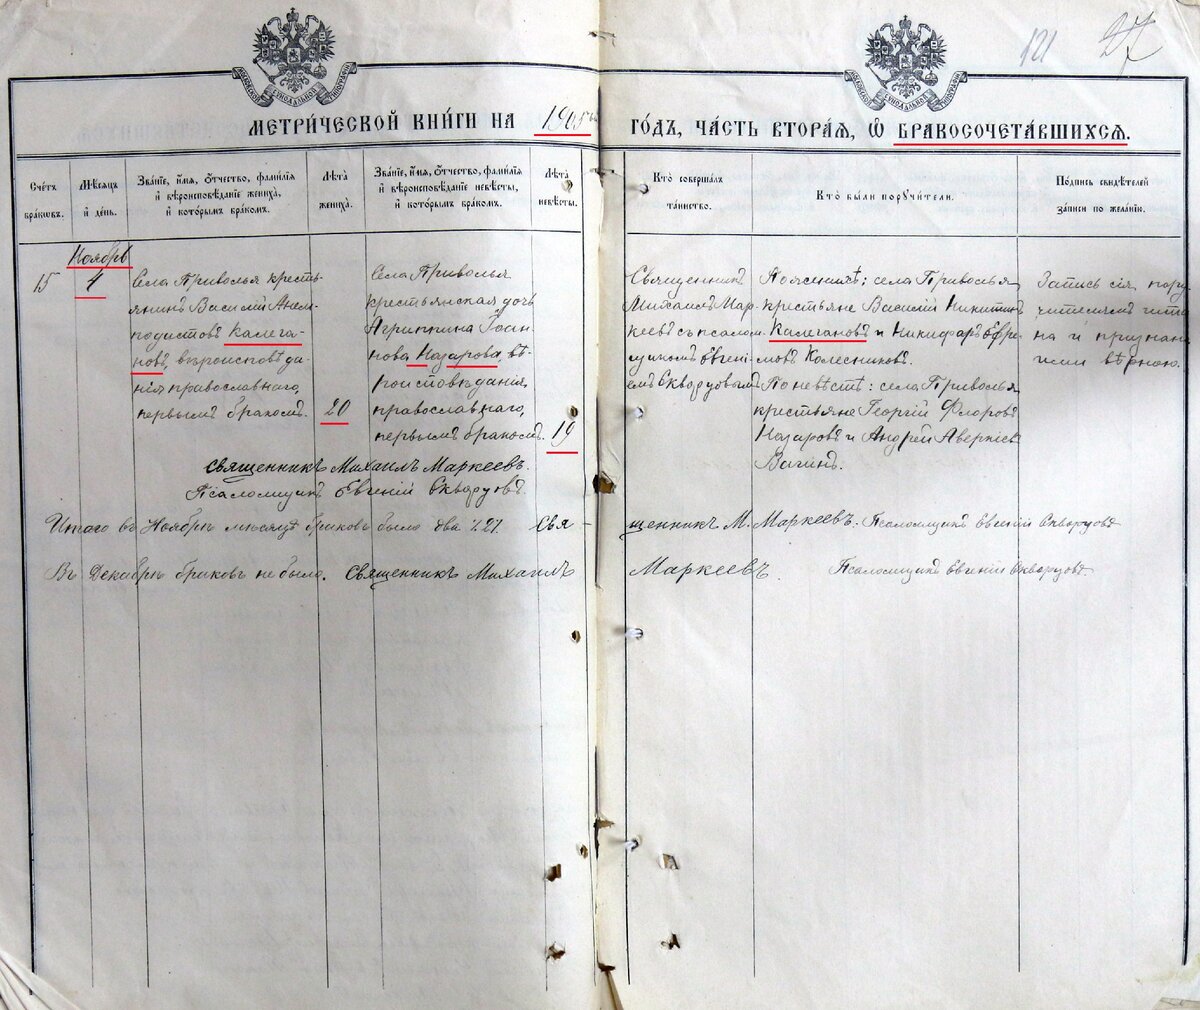 121 27
МЕТРИ́ЧЕСКОЙ КНИ́ГИ НА 1905й ГО́ДЪ, ЧА́СТЬ ВТОРА́Я, Ѡ҆ БРАКОСОЧЕТА́ВШИХСѦ.
Сче́тъ бра́ковъ.
Мѣ́сяцъ и҆ де́нь.
Зва́нїе, и҆́мя, ѻ҆́тчество, фами́лїя и҆ вѣроисповѣ́данїе жениха̀, и҆ кото́рымъ бра́комъ.
Лѣ́та жениха̀.
Зва́нїе, и҆́мя, ѻ҆́тчество, фами́лїя и҆ вѣроисповѣ́данїе невѣ́сты, и҆ кото́рымъ бра́комъ.
Лѣ́та невѣ́сты.
Кто̀ соверша́лъ та́инство.
Кто̀ бы́ли поручи́тели.
По́дпись свидѣ́телей за́писи по жела́нїю.
15
Ноябрь
4
Села Приволья кресть-
янинъ Василій Анем-
подистовъ Калега-
новъ, вѣроисповѣда-
нія православнаго,
первымъ бракомъ.
20
Села Приволья
крестьянская дочь
Агриппина Іоан-
нова Назарова, вѣ-
роисповѣданія
православнаго,
первымъ бракомъ.
19
Священникъ
Михаилъ Мар-
кеевъ съ псалом-
щикомъ Евгені-
емъ Скворцовымъ
По женихѣ: села Приволья
крестьяне Василій Никитинъ
Калегановъ и Никифоръ Ефре-
мовъ Колесниковъ.
По невѣстѣ: села Приволья
крестьяне Георгій Флоровъ
Назаровъ и Андрей Аверкіевъ
Вагинъ.
Запись сія пору-
чителямъ чита-
на и признан-
а ими вѣрною.
Священникъ Михаилъ Маркеевъ.
Псаломщикъ Евгеній Скворцовъ.
Итого въ Ноябрѣ мѣсяцѣ браковъ было два Священникъ М. Маркеевъ. Псаломщикъ Евгеній Скворцовъ
Въ Декабрѣ браковъ не было. Священникъ Михаилъ Маркеевъ. Псаломщикъ Евгеній Скворцовъ